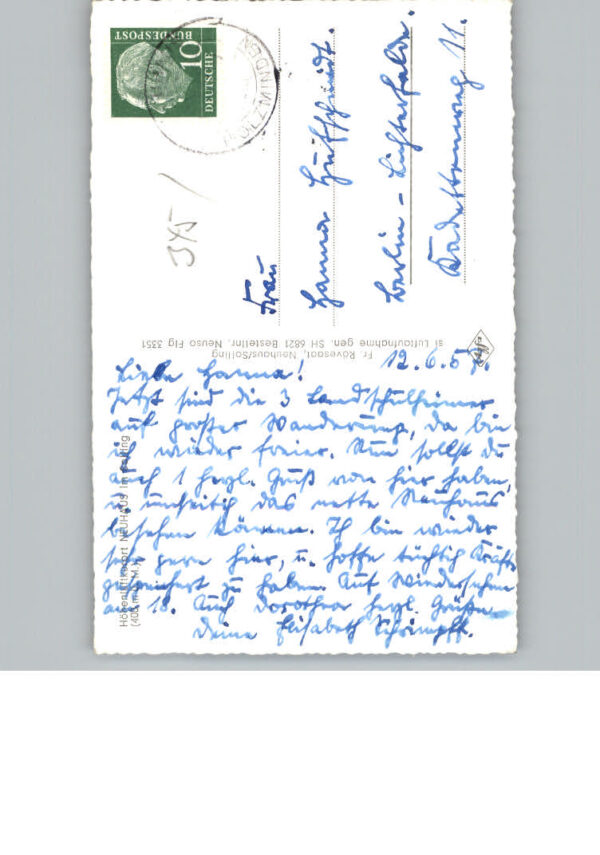 DEUTSCHE
BUNDESPOST
10
HOLZMINDEN
3x5 /
Frau
Hanna
Berlin - Lichterfelde.
Kadettenweg 11.
Fr. Rövesaat, Neuhaus/Solling
si Luftaufnahme gen. SH 6821 Bestellnr. Neuso Flg 3351
Agfa
Höhenluftkurort NEUHAUS im Solling
12.6.57.
Liebe Hanna!
Jetzt sind die 3 Landschulheimer
auf großer Wanderung, da bin
ich wieder freier. Nun sollst du
auch 1 herzl. Gruß von hier haben,
u. das nette Neuhaus
besehen können. Ich bin wieder
sehr gern hier, u. hoffe tüchtig Kräfte
gespeichert zu haben. Auf Wiedersehen
am 18. Auch Dorothea herzl. Grüße
Deine Elisabeth Schrimpff.